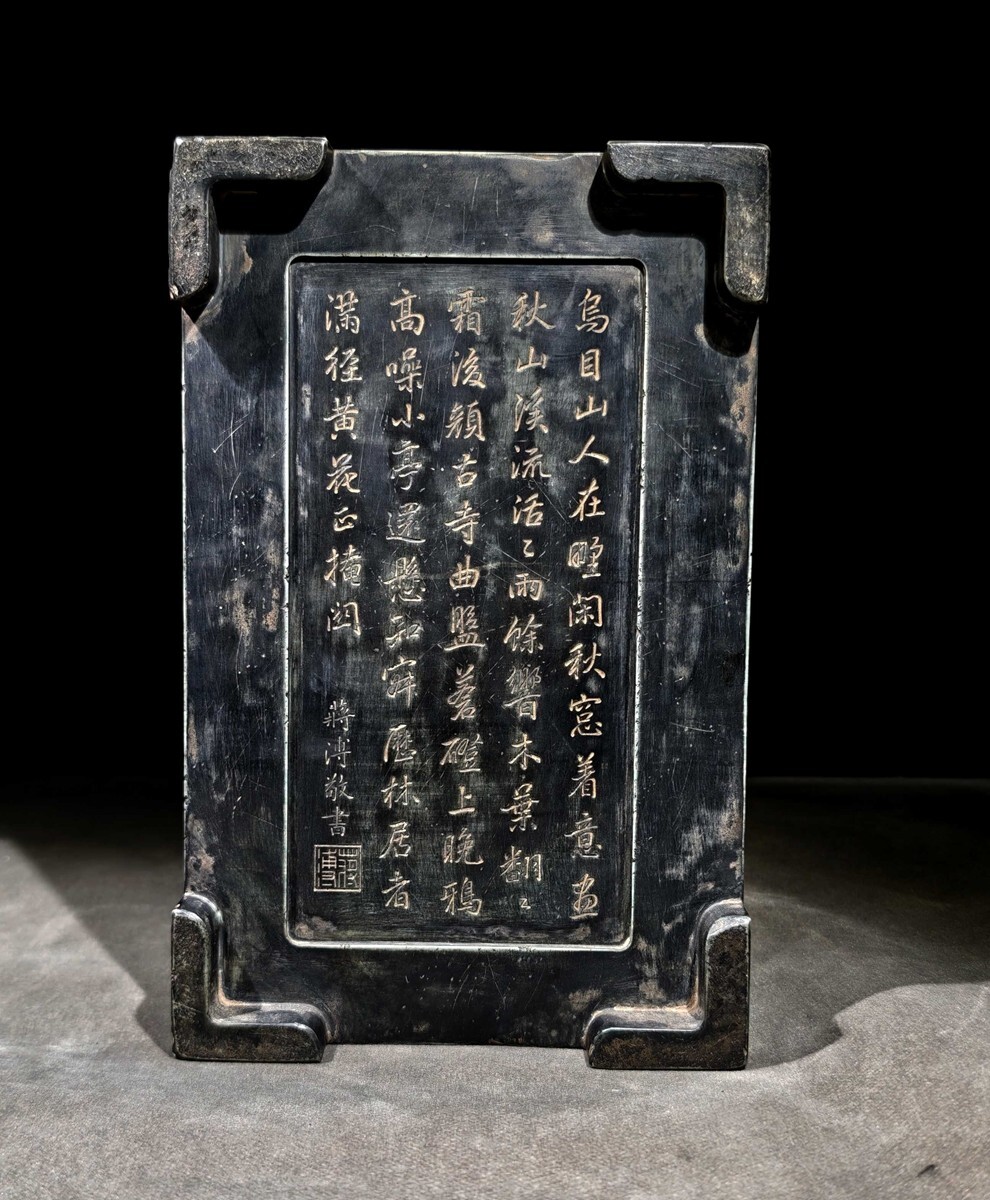 烏目山人在墅閑秋窓着意畫
秋山溪流活〻雨餘響木葉翻〻
霜後顏古寺曲盤蒼磴上晚鴉
高噪小亭還懸知寂歷林居者
滿徑黃花正掩関
蔣溥敬書
蔣溥